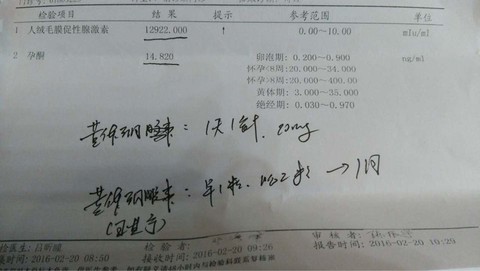 检验项目 结果 提示 参考范围 单位
1 人绒毛膜促性腺激素 12922.000 ↑ 0.00-10.00 mlu/ml
2 孕酮 14.820 卵泡期: 0.200-0.900 ng/ml
怀孕<8周: 20.000-34.000
怀孕>8周: 20.000-400.00
黄体期: 3.000-35.000
绝经期: 0.030-0.970
黄体酮胶囊: 1天1针. 20mg
黄体酮胶囊: 早1粒. 晚2粒 → 1周
检验者:
审核者:
时间:2016-02-20 08:50 接收时间:2016-02-20 09:26 报告时间:2016-02-20 10:29